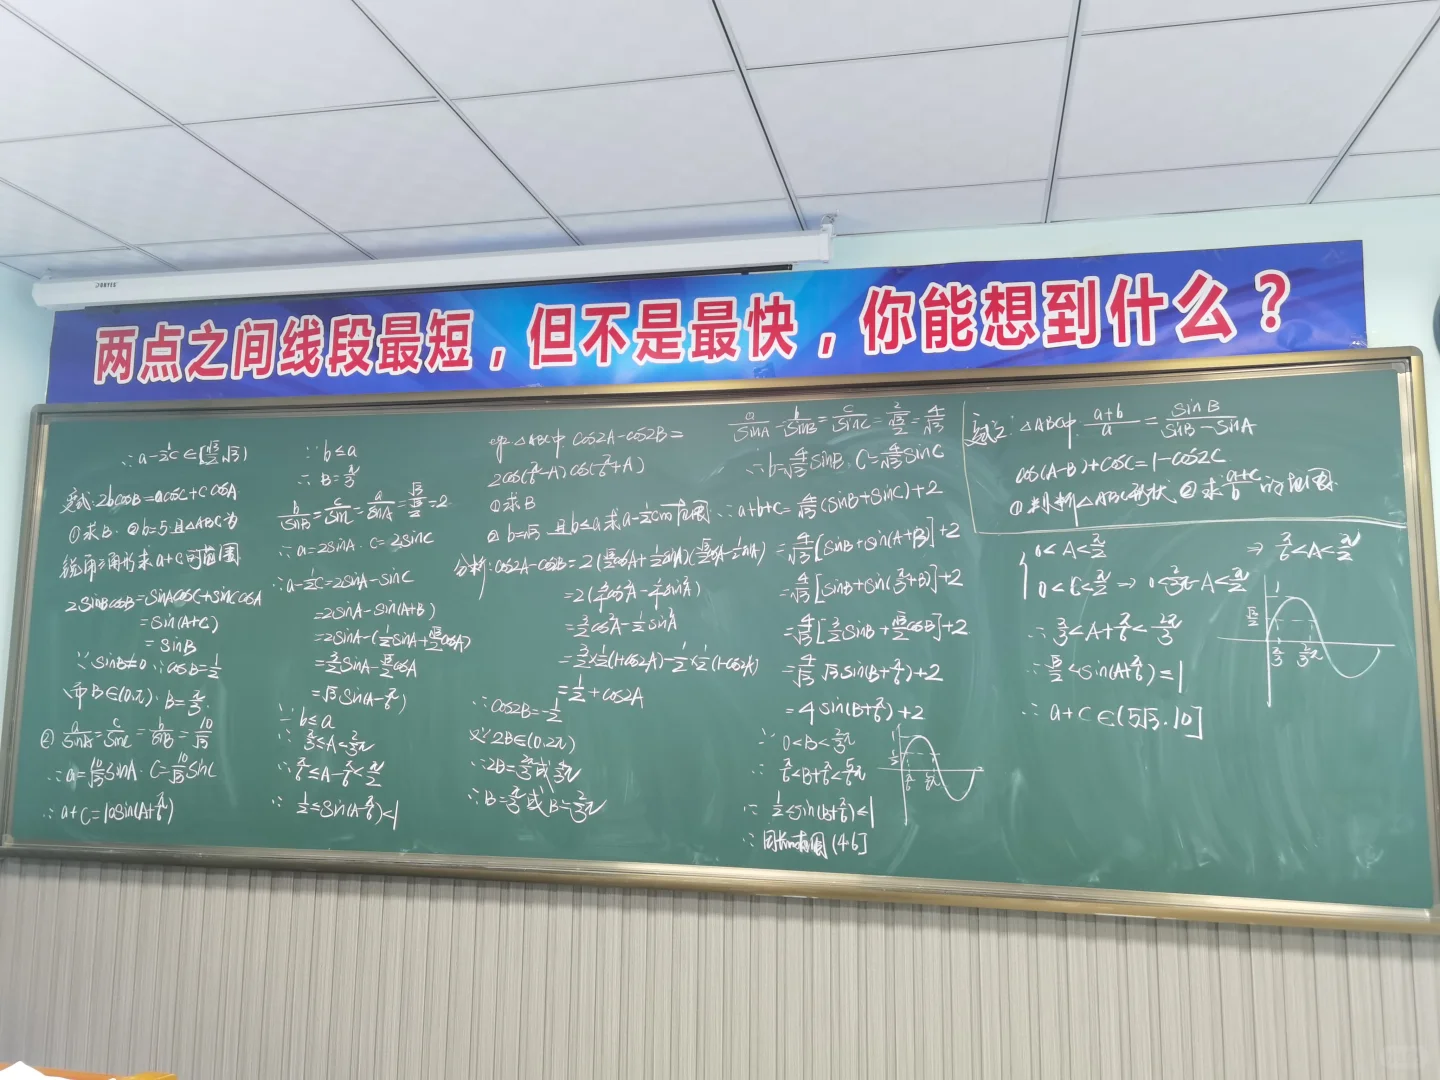 两点之间线段最短，但不是最快，你能想到什么？
∴a-½c∈[√3/2,√3)
变式:2bcosB=acosC+c cosA
①求B. ②b=5且△ABC为
锐角三角形求a+c的范围
2sinBcosB=sinAcosC+sinCcosA
=sin(A+C)
=sinB
∵sinB≠0 ∴cosB=½
而B∈(0,π). B=π/3.
② a/sinA=c/sinC=b/sinB=10/√3
∴a=10/√3 sinA. C=10/√3 sinC
∴a+c=10sin(A+π/6)
∵b≤a
∴B=π/3
b/sinB=c/sinC=a/sinA=√3/(√3/2)=2
∴a=2sinA. c=2sinC
∴a-½c=2sinA-sinC
=2sinA-sin(A+B)
=2sinA-(½sinA+√3/2cosA)
=3/2sinA-√3/2cosA
=√3sin(A-π/6)
∵b≤a
∴π/3≤A<2/3π
∴π/6≤A-π/6<π/2
∴½≤sin(A-π/6)<1
例:△ABC中. cos2A-cos2B=
2cos(π/6-A)cos(π/6+A)
①求B
②b=√3 且b≤a求a-½c的范围
分析:cos2A-cos2B=2(√3/2cosA+½sinA)(√3/2cosA-½sinA)
=2(¾cos²A-¼sin²A)
=3/2cos²A-½sin²A
=3/2×½(1+cos2A)-½×½(1-cos2A)
=½+cos2A
∴cos2B=-½
又∵2B∈(0,2π)
∴2B=2π/3或4/3π
∴B=π/3或B=2/3π
a/sinA=b/sinB=c/sinC=2/(√3/2)=4/√3
∴b=4/√3sinB. C=4/√3sinC
∴a+b+c=4/√3(sinB+sinC)+2
=4/√3[sinB+sin(A+B)]+2
=4/√3[sinB+sin(π/3+B)]+2
=4/√3[3/2sinB+√3/2cosB]+2
=4/√3 √3sin(B+π/6)+2
=4sin(B+π/6)+2
∵0<B<2/3π
∴π/6<B+π/6<5/6π
∴½<sin(B+π/6)≤1
∴周长的范围(4.6]
1
½
π/6
5/6π
变式2:△ABC中. (a+b)/a=sinB/(sinB-sinA)
cos(A-B)+cosC=1-cos2C
①判断△ABC形状. ②求(a+c)/b的范围.
0<A<π/2
0<C<π/2⇒0<2/3π-A<π/2
⇒π/6<A<π/2
∴π/3<A+π/6<2π/3
∴√3/2<sin(A+π/6)≤1
∴a+c∈(5√3.10]
1
√3/2
π/3
2/3π